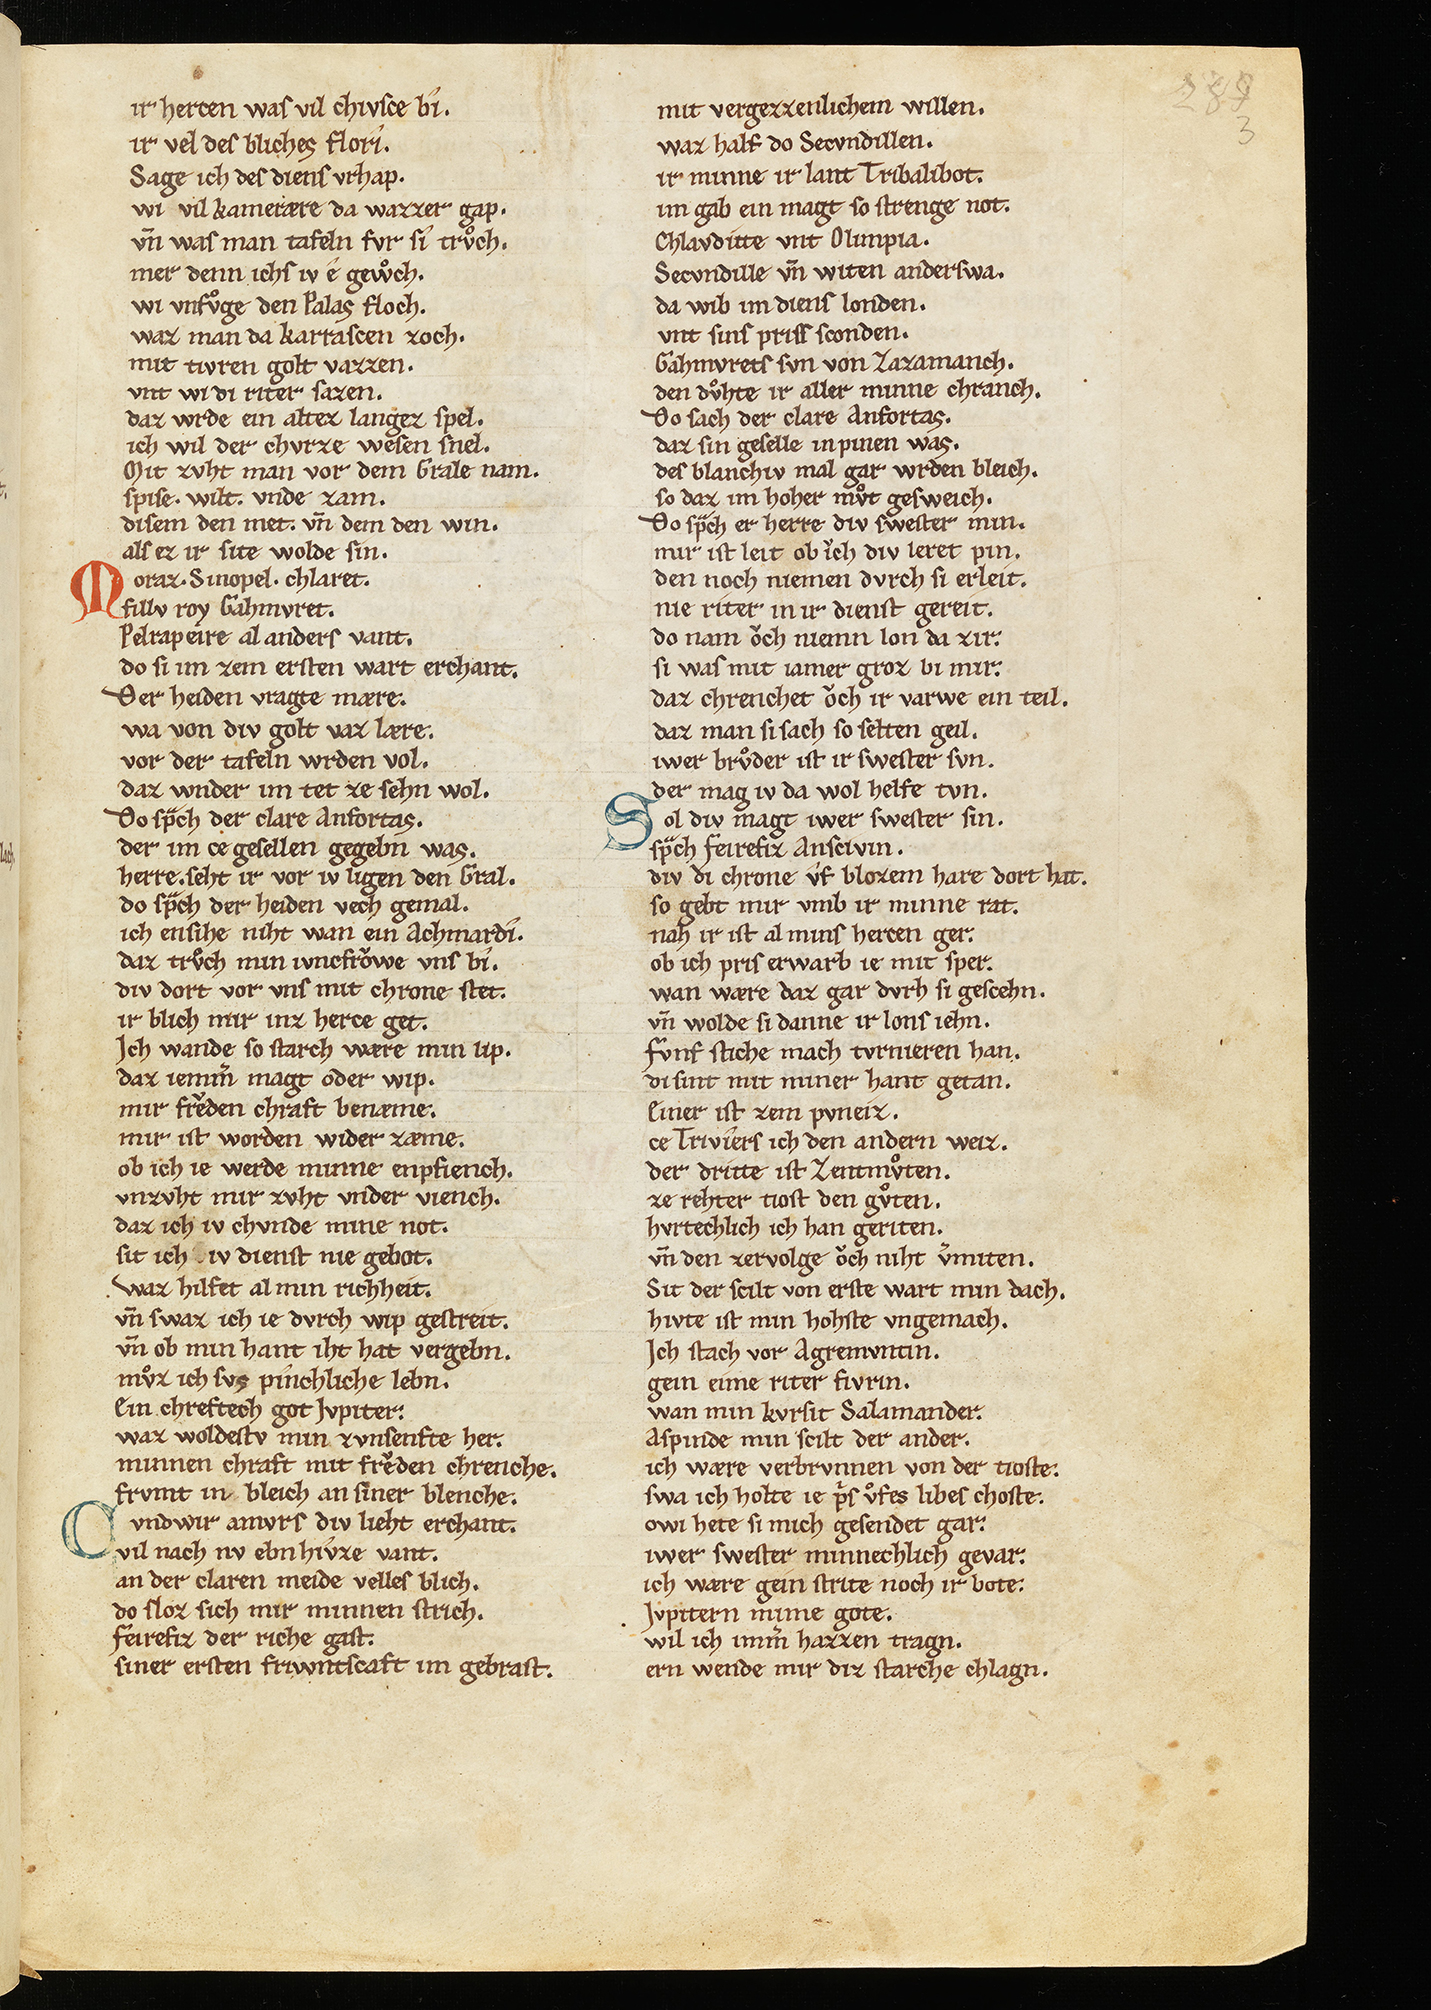 ir hercen was vil chivsce bi.
ir vel des bliches flori.
Sage ich des diens vrhap.
wi vil kamerære da wazzer gap.
vñ was man tafeln fvr si trv̊ch.
mer denn ichs iv é gewv̊ch.
wi vnfv̊ge den Palas floch.
waz man da karrascen zoch.
mit tivren golt vazzen.
vnt wi di riter sazen.
daz wrde ein altez langez spel.
ich wil der chvrze wesen snel.
Mit zvht man vor dem Grale nam.
spise. wilt. vnde zam.
disem den met. vñ dem den win.
als ez ir site wolde sin.
Moraz. Sinopel. chlaret.
fillv roy Gahmvret.
Pelrapeire al anders vant.
do si im zem ersten wart erchant.
Der heiden vragte mære.
wa von div golt vaz lære.
vor der tafeln wrden vol.
daz wnder im tet ze sehn wol.
Do spͣch der clare Anfortas.
der im ce gesellen gegebn was.
herre. seht ir vor iv ligen den Gral.
do spͣch der heiden vech gemal.
ich ensihe niht wan ein Achmardi.
daz trv̊ch min ivncfrǒwe vns bi.
div dort vor vns mit chrone stet.
ir blich mir inz herce get.
Ich wande so starch wære min lip.
daz iemm̃ magt oder wip.
mir frěden chraft benæme.
mir ist worden wider zæme.
ob ich ie werde minne enpfiench.
vnzvht mir zvht vnder viench.
daz ich iv chvnde mine not.
sit ich iv dienst nie gebot.
waz hilfet al min richheit.
vñ swaz ich ie dvrch wip gestreit.
vñ ob min hant iht hat vergebn.
mv̊z ich svs pinchliche lebn.
Ein chreftech got Jvpiter.
waz woldestv min zvnsenfte her.
minnen chraft mit frěden chrenche.
frvmt in bleich an siner blenche.
Cvndwir amvrs div lieht erchant.
vil nach nv ebn hivze vant.
an der claren meide velles blich.
do sloz sich mir minnen strich.
feirefiz der riche gast.
siner ersten friwntscaft im gebrast.
mit vergezzenlichem willen.
waz half do Secvndillen.
ir minne ir lant Tribalibot.
im gab ein magt so strenge not.
Chlavditte vnt Olimpia.
Secvndille vñ witen anderswa.
da wib im diens londen.
vnt sins priss sconden.
Gahmvrets svn von Zazamanch.
den dv̊hte ir aller minne chranch.
Do sach der clare Anfortas.
daz sin geselle in pinen was.
des blanchiv mal gar wrden bleich.
so daz im hoher mv̊t gesweich.
Do spͣch er herre div swester min.
mir ist leit ob ich div leret pin.
den noch niemen dvrch si erleit.
nie riter in ir dienst gereit.
do nam ǒch niemn lon da zir.
si was mit iamer groz bi mir.
daz chrenchet ǒch ir varwe ein teil.
daz man si sach so selten geil.
iwer brv̊der ist ir swester svn.
der mag iv da wol helfe tvn.
Sol div magt iwer swester sin.
spͣch feirefiz Anscivin.
div di chrone v̊f blozem hare dort hat.
so gebt mir vmb ir minne rat.
nah ir ist al mins hercen ger.
ob ich pris erwarb ie mit sper.
wan wære daz gar dvrh si gescehn.
vñ wolde si danne ir lons iehn.
fvnf stiche mach tvrnieren han.
di sint mit miner hant getan.
Einer ist zem pvneiz.
ce Triviers ich den andern weiz.
der dritte ist Zentmv̊ten.
ze rehter tiost den gv̊ten.
hvrtechlich ich han geriten.
vñ den zervolge ǒch niht v̄miten.
Sit der scilt von erste wart min dach.
hivte ist min hohste vngemach.
Ich stach vor Agremvntin.
gein eime riter fivrin.
wan min kvrsit Salamander.
Aspinde min scilt der ander.
ich wære verbrvnnen von der tioste.
swa ich holte ie pͥs v̊fes libes choste.
owi hete si mich gesendet gar.
iwer swester minnechlich gevar.
ich wære gein strite noch ir bote.
Jvpitern mime gote.
wil ich imm̃ hazzen tragn.
ern wende mir diz starche chlagn.